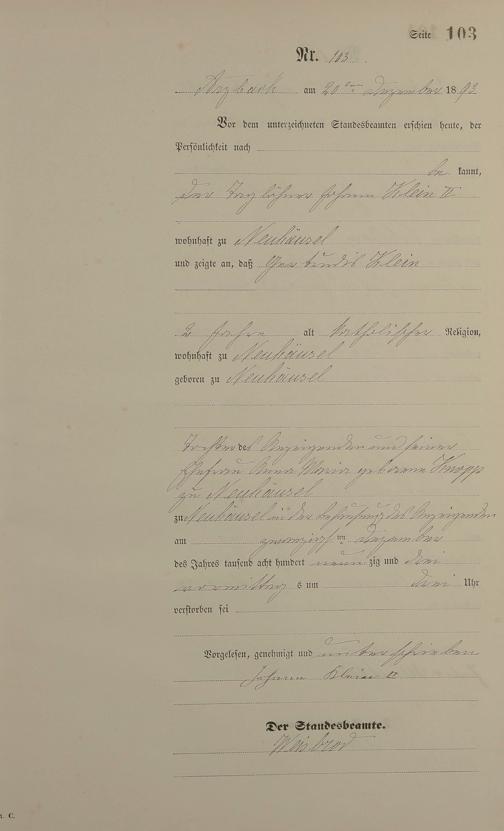 Seite 103
Nr. 103.
Arzbach am 20ten Dezember 1893
Vor dem unterzeichneten Standesbeamten erschien heute, der
Persönlichkeit nach
be kannt,
der Taglöhner Johann Klein II
wohnhaft zu Neuhäusel
und zeigte an, daß Gertrudis Klein
2 Jahre alt katholischer Religion,
wohnhaft zu Neuhäusel
geboren zu Neuhäusel
Tochter des Anzeigenden und seiner
Ehefrau Anna Maria geborene Knopp
zu Neuhäusel
zu Neuhäusel in der Behausung des Anzeigenden
am zwanzigsten Dezember
des Jahres tausend acht hundert neun zig und drei
vormittag s um drei Uhr
verstorben sei
Vorgelesen, genehmigt und unterschrieben
Johann Klein II
Der Standesbeamte.
Weisbrod
C.